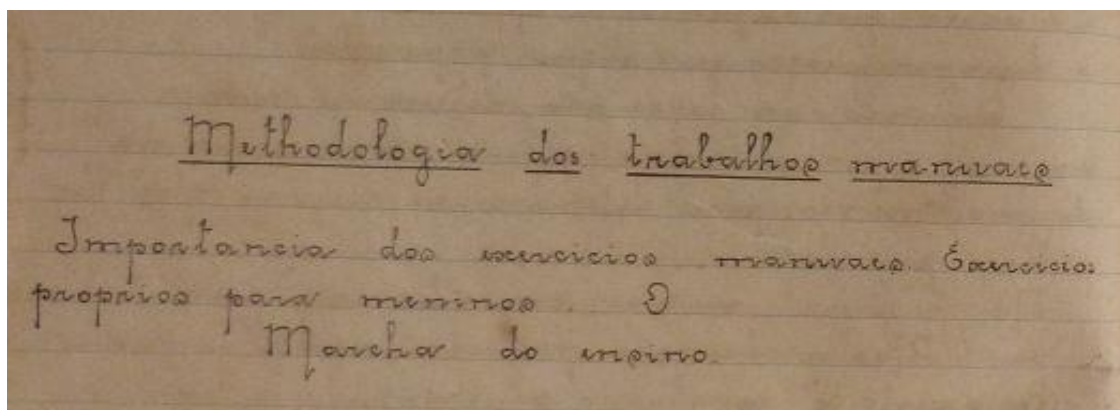 Methodologia dos trabalhos manuaes
Importancia dos exercicios manuaes. Exercicios
proprios para meninos.
Marcha do ensino.